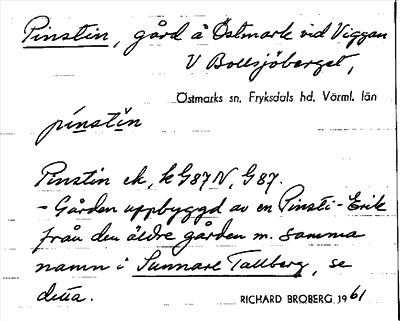 Pinstin, gård å Östmark vid Viggen
V Bollsjöberget,
Östmarks sn, Fryksdals hd, Värml. län
pinstin
Pinstin ek, k G87N, G87.
- Gården uppbyggd av en Pinsti-Erik
från den äldre gården m. samma
namn i Sunnare Tallberg, se
detta.
RICHARD BROBERG 1961